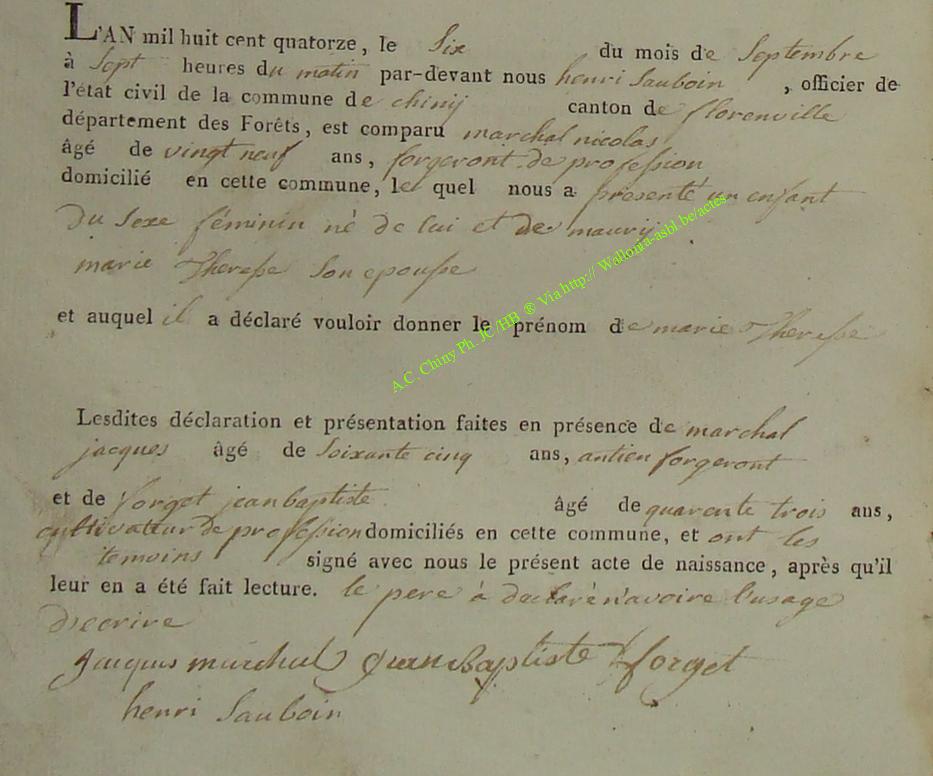 L'AN mil huit cent quatorze, le Six du mois de Septembre
à Sept heures du matin par-devant nous henri Sauboin, officier de
l'état civil de la commune de chinij canton de florenville
département des Forêts, est comparu marchal nicolas
âgé de vingt neuf ans, forgeront de profession
domicilié en cette commune, le quel nous a presenté un enfant
du Sexe féminin né de lui et de maurij
marie Therese Son epouse
et auquel il a déclaré vouloir donner le prénom de marie Therese
Lesdites déclaration et présentation faites en présence de marchal
jacques âgé de Soixante cinq ans, antien forgeront
et de forget jean baptiste âgé de quarente trois ans,
cultivateur de profession domiciliés en cette commune, et ont les
temoins signé avec nous le présent acte de naissance, après qu'il
leur en a été fait lecture. le pere à declaré n'avoire l'usage
decrire
Jacques marchal jean Baptiste forget
henri Sauboin
A.C. Chiny Ph. JC /HB ® Via http:// Wallonia-asbl.be/actes